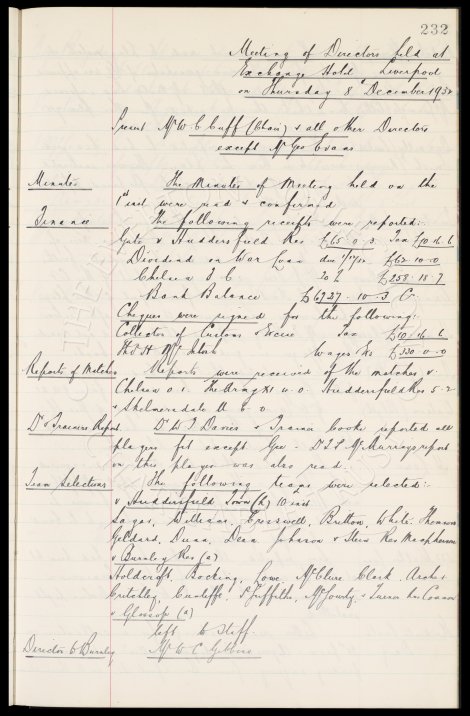 232
Meeting of Directors held at
Exchange Hotel Liverpool
on Thursday 8th December 1932
Present Mr W. C. Cuff (Chair) & all other Directors
except Mr Geo Evans
Minutes The Minutes of Meeting held on the
1st inst were read & confirmed
Finance The following receipts were reported:
Gate v Huddersfield Res £65-0-3 Tax £10.16.6
Dividend on War Loan due 1/12/32 £62-10-0
Chelsea F C £258-18-7
Bank Balance £6727-10-3 Cr
Cheques were signed for the following:
Collector of Customs & Excise Tax £10/16/6
Wages &c £330-0-0
Reports of Matches Reports were received of the matches v
Chelsea 0-1 u-0 Huddersfield Res 5-2
& Skelmersdale U 6-0
Dr & Trainers Report Dr W J Davies & Trainer Cooke reported all
players fit except Gee - McMurrays report
on this player was also read.
Team Selections The following teams were selected:-
v Huddersfield Town (h) 10 inst
Sagar, Williams, Cresswell, Britton, White, Thomson
Geldard, Dunn, Dean, Johnson & Stein Res Macpherson
v Burnley Res (a)
Holdcroft, Bocking, Lowe, McClure, Clark, Archer
Critchley, Cunliffe, Griffiths, McGourty & Turner
v Glossop (a)
left to Staff.
Director to Burnley Mr W C Gibbins